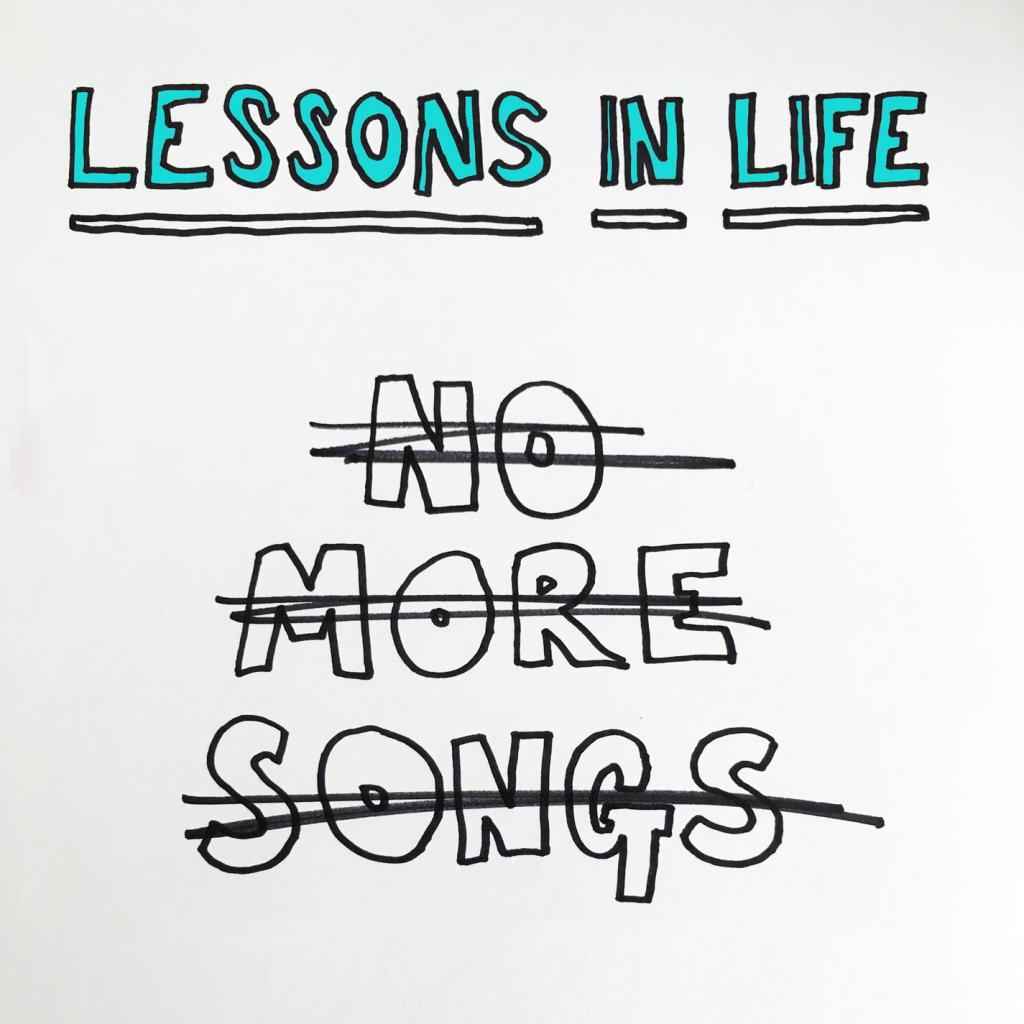 LESSONS IN LIFE
NO
MORE
SONGS